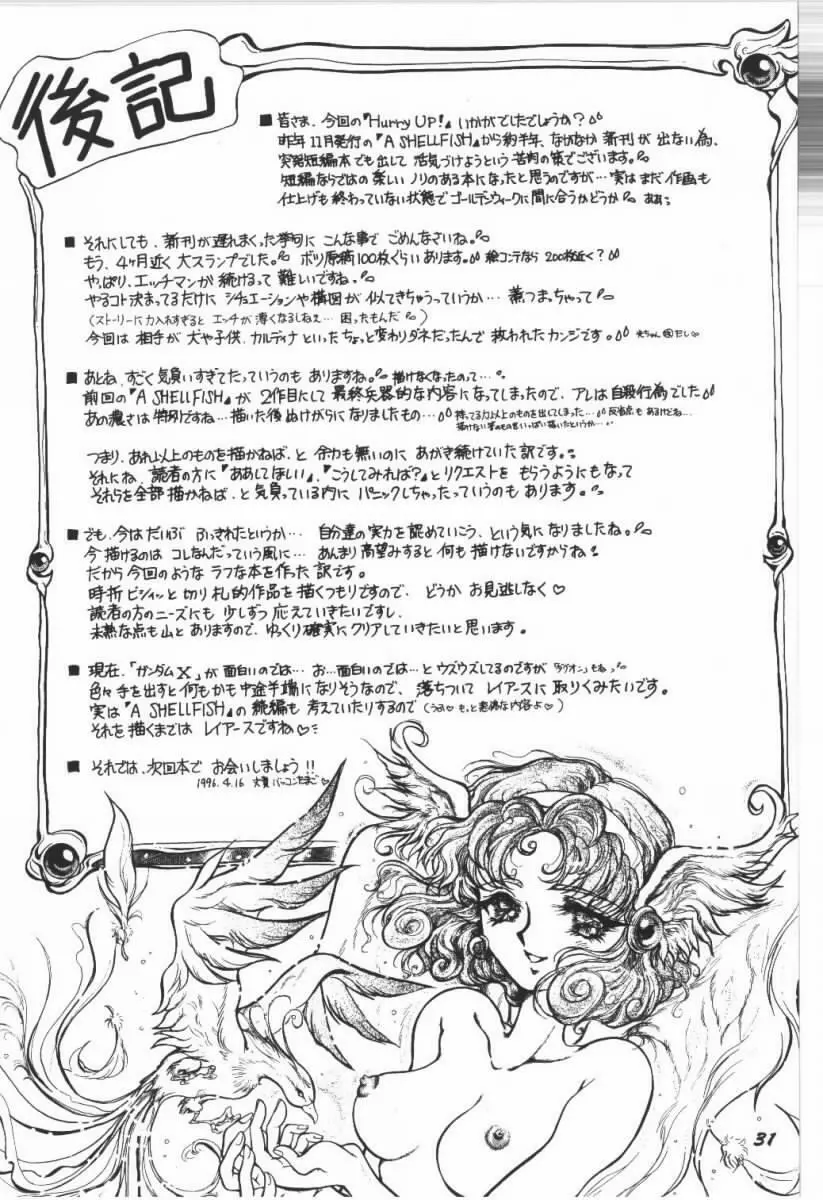 後記
■皆さま、今回の『Hurry UP!』いかがでしたでしょうか?
昨年11月発行の『A SHELLFISH』から約半年、なかなか新刊が出ない為、
突発短編本でも出して活気づけようという苦肉の策でございます。
短編ならではの楽しいノリのある本になったと思うのですが…実はまだ作画も
仕上げも終わっていない状態でゴールデンウィークに間に合うかどうか。ああ
■それにしても、新刊が遅れまくった挙句にこんな事でごめんなさいね。
もう、4ヶ月近く大スランプでした。ボツ原稿100枚ぐらいあります。絵コンテなら200枚近く?
やっぱり、エッチマンガ続けるって難しいですね。
やるコト決まってるだけにシチュエーションや構図が似てきちゃうっていうか…煮つまっちゃって
(ストーリーに力入れすぎるとエッチが薄くなるしねえ…困ったもんだ)
今回は相手が犬や子供、カルディナといったちょっと変わりダネだったんで救われたカンジです。
■あとね、すごく気負いすぎてたっていうのもありますね。描けなくなったのって…
前回の『A SHELLFISH』が2作目にして最終兵器的な内容になってしまったので、アレは自殺行為でした
あの濃さは特別ですね…描いた後ぬけがらになりましたもの…持ってる力以上のものを出してしまった…反省点もあるけどね…
つまり、あれ以上のものを描かねば、と余力も無いのにあがき続けていた訳です。
それにね、読者の方に『ああしてほしい』、『こうしてみれば?』とリクエストをもらうようにもなって
それらを全部描かねば、と気負っている内にパニックしちゃったっていうのもあります。
■でも、今はだいぶふっきれたというか…自分達の実力を認めていこう、という気になりましたね。
今描けるのはコレなんだっていう風に…あんまり高望みすると何も描けないですからね
だから今回のようなラフな本を作った訳です。
時折ビシィッと切り札的作品を描くつもりですので、どうかお見逃しなく♡
読者の方のニーズにも少しずつ応えていきたいですし、
未熟な点も山とありますので、ゆっくり確実にクリアしていきたいと思います。
■現在、「ガンダムX」が面白いのでは…お…面白いのでは…とウズウズしてるのですが
色々手を出すと何もかも中途半端になりそうなので、落ちついてレイアースに取りくみたいです。
実は『A SHELLFISH』の続編も考えていたりするので(うふ♡もっと悪趣な内容よ♡)
それを描くまではレイアースですね♡
■それでは、次回本でお会いしましょう!!
1996.4.16
31